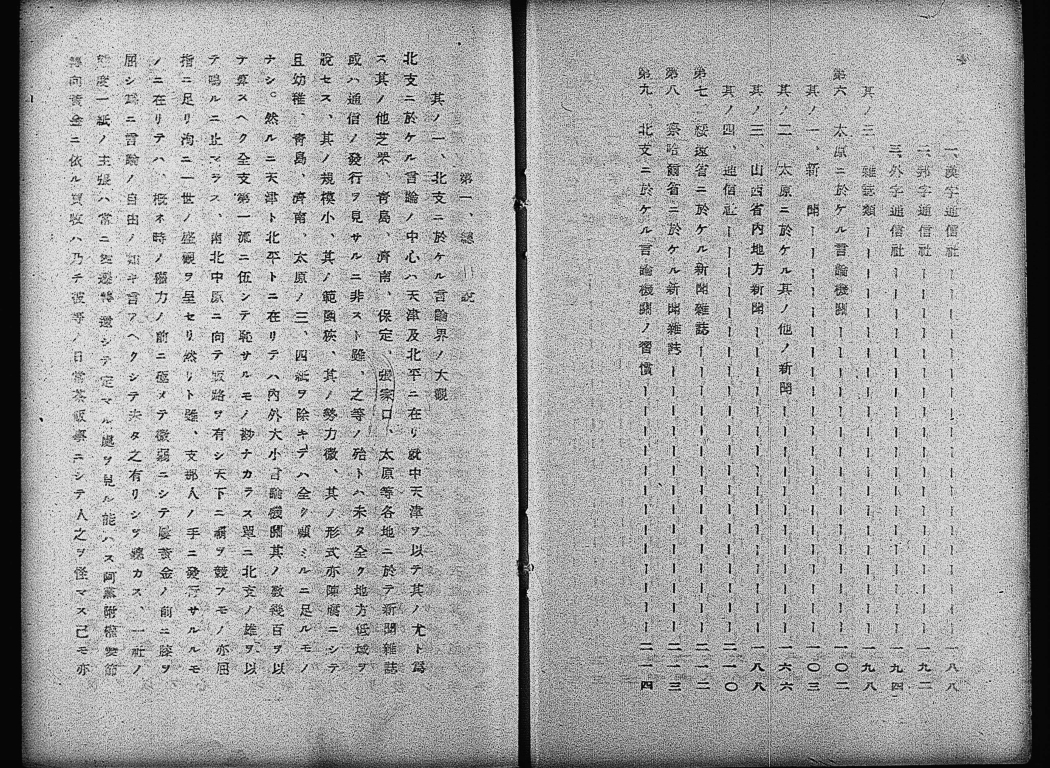 一、漢字通信社 一八八
二、邦字通信社 一九二
三、外字通信社 一九四
其ノ三 雜誌類 一九八
第六、太原ニ於ケル言論機關 一〇二
其ノ一、新 聞 一〇三
其ノ二 太原ニ於ケル其ノ他ノ新聞 一六六
其ノ三、山西省內地方新聞 一八八
其ノ四、通信社 二一〇
第七 綏遠省ニ於ケル新聞雜誌 二一二
第八、察哈爾省ニ於ケル新聞雜誌 二一三
第九、北支ニ於ケル言論機關ノ習慣 二一四
第一、總 說
其ノ一、北支ニ於ケル言論界ノ大觀
北支ニ於ケル言論ノ中心ハ天津及北平ニ在リ就中天津ヲ以テ其ノ尤ト爲
ス其ノ他芝罘、青島、濟南、保定、張家口、太原等各地ニ於テ新聞雜誌
或ハ通信ノ發行ヲ見サルニ非スト雖、之等ノ殆トハ未タ全ク地方低域ヲ
脫セス、其ノ規模小、其ノ範圍狹、其ノ勢力微、其ノ形式亦陳腐ニシテ
且幼稚、青島、濟南、太原ノ三、四紙ヲ除キテハ全ク顧ミルニ足ルモノ
ナシ。然ルニ天津ト北平トニ在リテハ內外大小言論機關其ノ數幾百ヲ以
テ算スヘク全支第一流ニ伍シテ恥サルモノ尠ナカラス單ニ北支ノ雄ヲ以
テ鳴ルニ止マラス、南北中原ニ向テ販路ヲ有シ天下ニ霸ヲ競フモノ亦屈
指ニ足リ洵ニ一世ノ盛觀ヲ呈セリ然リト雖、支那人ノ手ニ發行サルルモ
ノニ在リテハ、概ネ時ノ權力ノ前ニ極メテ微弱ニシテ屢黃金ノ前ニ膝ヲ
屈シ爲ニ言論ノ自由ノ如キ言フヘクシテ未タ之有リシヲ聽カス、一社ノ
態度一紙ノ主張ハ常ニ 轉 シテ定マル處ヲ見ル能ハス阿黨附權變節
轉向黃金ニ依ル買收ハ乃チ彼等ノ日常茶飯事ニシテ人之ヲ怪マス己モ亦